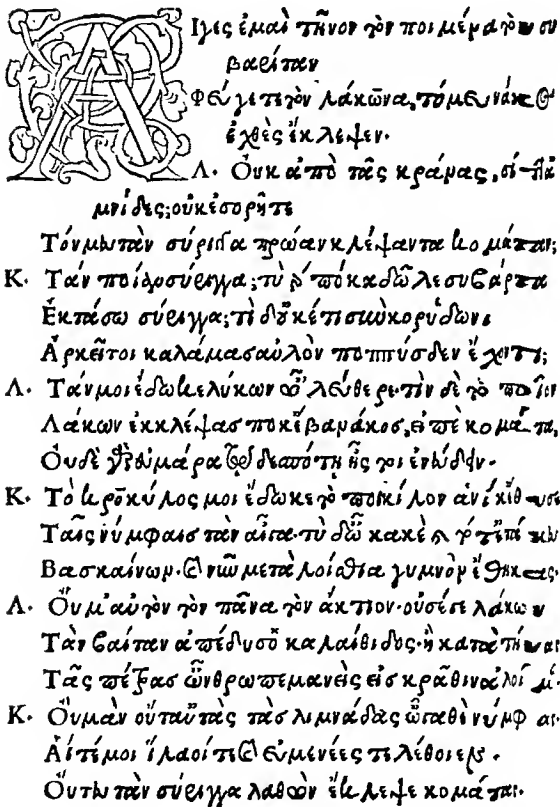 ΑΙγες ἐμαὶ τῆνον τὸν ποιμένα τὸν συ
βαρίταν
Φεύγετε τὸν λάκωνα, τό μευ νάκος
ἐχθὲς ἔκλεψεν.
Λ. Οὐκ ἀπὸ τᾶς κράνας, σίτ
αμνίδες; οὐκ ἐσορῆτε
Τόν μευ τὰν σύριγγα πρώαν κλέψαντα κομάταν;
Κ. Τὰν ποίαν σύριγγα; τὺ γάρ πόκα δῶλε συβάρτα
Ἐκτάσω σύριγγα; τί δ' οὐκέτι σὺν κορύδωνι
Ἀρκεῖ τοι καλάμας αὐλὸν ποππύσδεν ἔχοντι;
Λ. Τάν μοι ἔδωκε λύκων ὦ 'λεύθερε. τὶν δὲ τὸ ποῖον
Λάκων ἐκκλέψας ποκ' ἔβα νάκος, εἰπὲ κομάτα,
Οὐδὲ γὰρ εὐμάρα τῷ δεσπότῃ ἦς τοι ἐνεύδεν.
Κ. Τὸ κροκύλος μοι ἔδωκε τὸ ποικίλον ἁνίκ' ἔθυσε
Ταῖς νύμφαις τὰν αἶγα. τὺ δ' ὦ κακὲ καὶ τότ' ἐτάκευ
Βασκαίνων. καὶ νῦν με τὰ λοίσθια γυμνὸν ἔθηκας.
Λ. Οὔ μ' αὐτὸν τὸν πᾶνα τὸν ἄκτιον. οὔ σέ γε λάκων
Τὰν βαίταν ἀπέδυσ' ὁ καλαίθιδος. ἢ κατὰ τήνας
Τᾶς πέτρας ὤνθρωπε μανεὶς εἰς κρᾶθιν ἁλοίμ
Κ. Οὔ μὰν οὔτ' αὐτὰς τὰς λιμνάδας ὦγαθὲ νύμφας
Αἵτέ μοι ἵλαοί τε καὶ εὐμενέες τελέθοιεν.
Οὔτευ τὰν σύριγγα λαθὼν ἔκλεψε κομάτας.